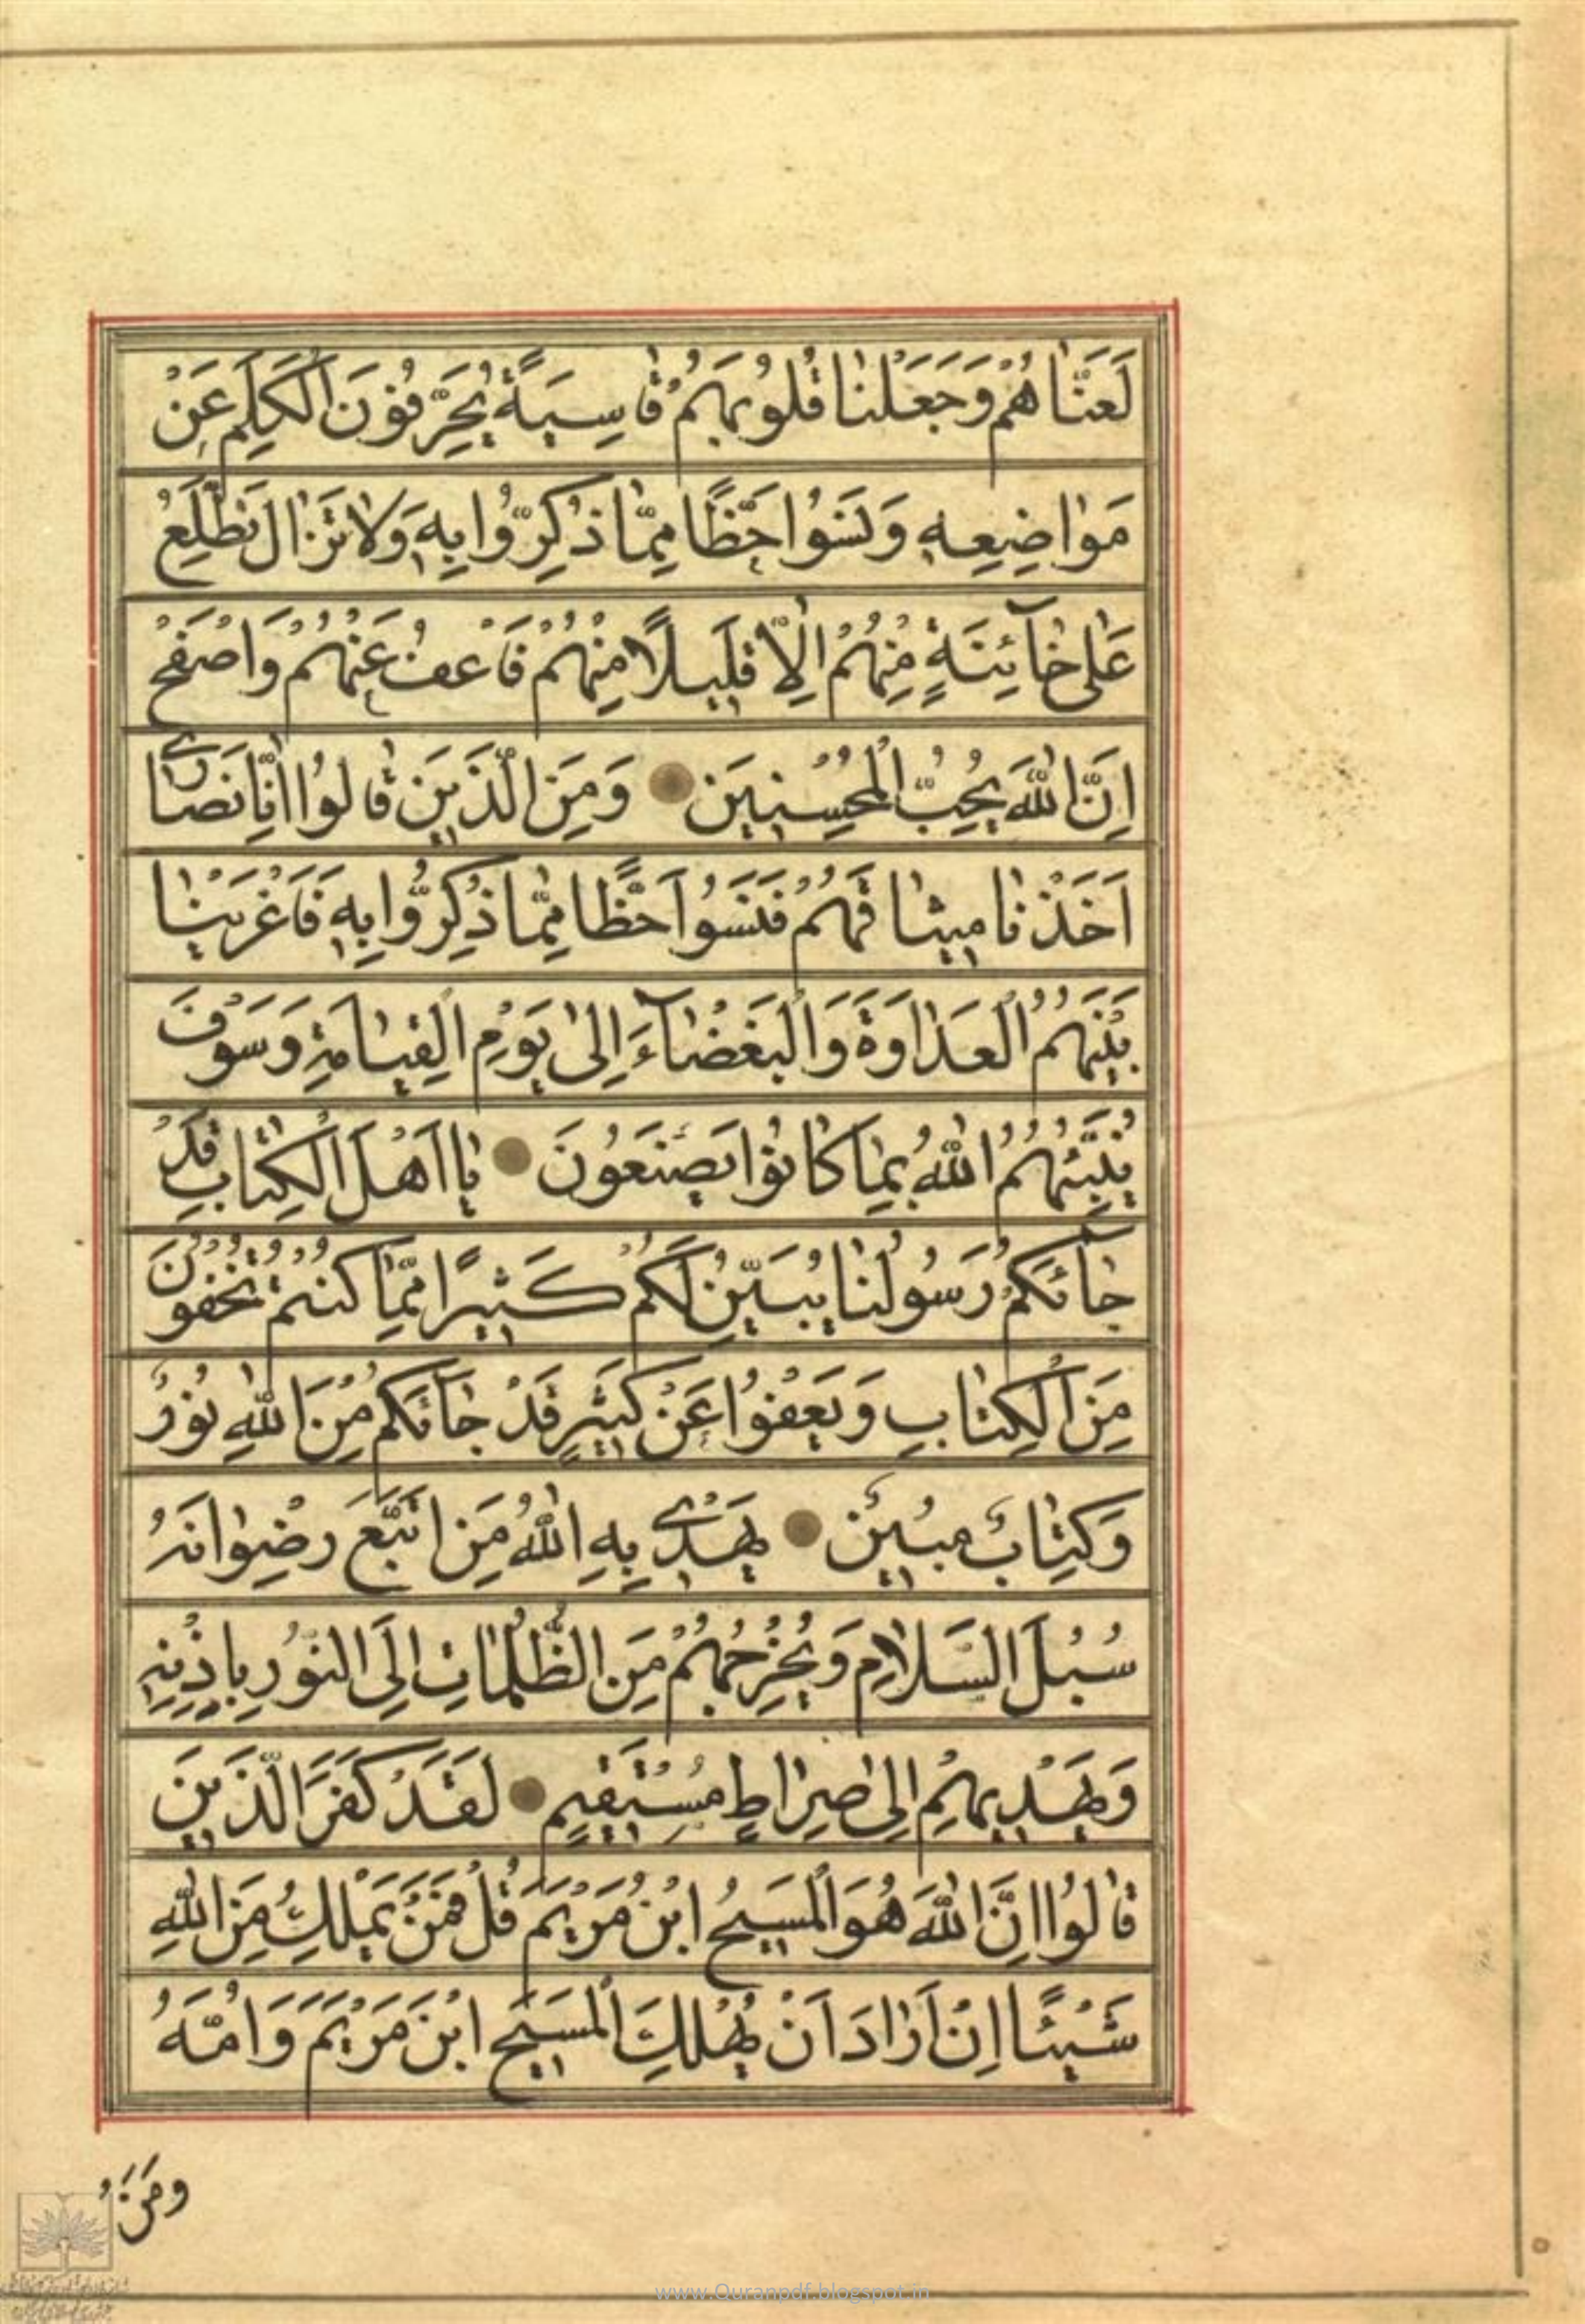 لَعَنَّاهُمْ وَجَعَلْنَا قُلُوبَهُمْ قَاسِيَةً يُحَرِّفُونَ الْكَلِمَ عَنْ
مَوَاضِعِهِ وَنَسُوا حَظًّا مِمَّا ذُكِّرُوا بِهِ وَلَا تَزَالُ تَطَّلِعُ
عَلَى خَآئِنَةٍ مِنْهُمْ اِلَّا قَلِيلًا مِنْهُمْ فَاعْفُ عَنْهُمْ وَاصْفَحْ
اِنَّ اللّٰهَ يُحِبُّ الْمُحْسِنِينَ وَمِنَ الَّذِينَ قَالُوا اِنَّا نَصَارٰى
اَخَذْنَا مِيثَاقَهُمْ فَنَسُوا حَظًّا مِمَّا ذُكِّرُوا بِهِ فَاَغْرَيْنَا
بَيْنَهُمُ الْعَدَاوَةَ وَالْبَغْضَآءَ اِلَى يَوْمِ الْقِيَامَةِ وَسَوْفَ
يُنَبِّئُهُمُ اللّٰهُ بِمَا كَانُوا يَصْنَعُونَ يَا اَهْلَ الْكِتَابِ قَدْ
جَآئَكُمْ رَسُولُنَا يُبَيِّنُ لَكُمْ كَثِيرًا مِمَّا كُنْتُمْ تُخْفُونَ
مِنَ الْكِتَابِ وَيَعْفُوا عَنْ كَثِيرٍ قَدْ جَآئَكُمْ مِنَ اللّٰهِ نُورٌ
وَكِتَابٌ مُبِينٌ يَهْدِي بِهِ اللّٰهُ مَنِ اتَّبَعَ رِضْوَانَهُ
سُبُلَ السَّلَامِ وَيُخْرِجُهُمْ مِنَ الظُّلُمَاتِ اِلَى النُّورِ بِاِذْنِهِ
وَيَهْدِيهِمْ اِلَى صِرَاطٍ مُسْتَقِيمٍ لَقَدْ كَفَرَ الَّذِينَ
قَالُوا اِنَّ اللّٰهَ هُوَ الْمَسِيحُ ابْنُ مَرْيَمَ قُلْ فَمَنْ يَمْلِكُ مِنَ اللّٰهِ
شَيْئًا اِنْ اَرَادَ اَنْ يُهْلِكَ الْمَسِيحَ ابْنَ مَرْيَمَ وَاُمَّهُ
وَمَنْ
www.Quranpdf.blogspot.in